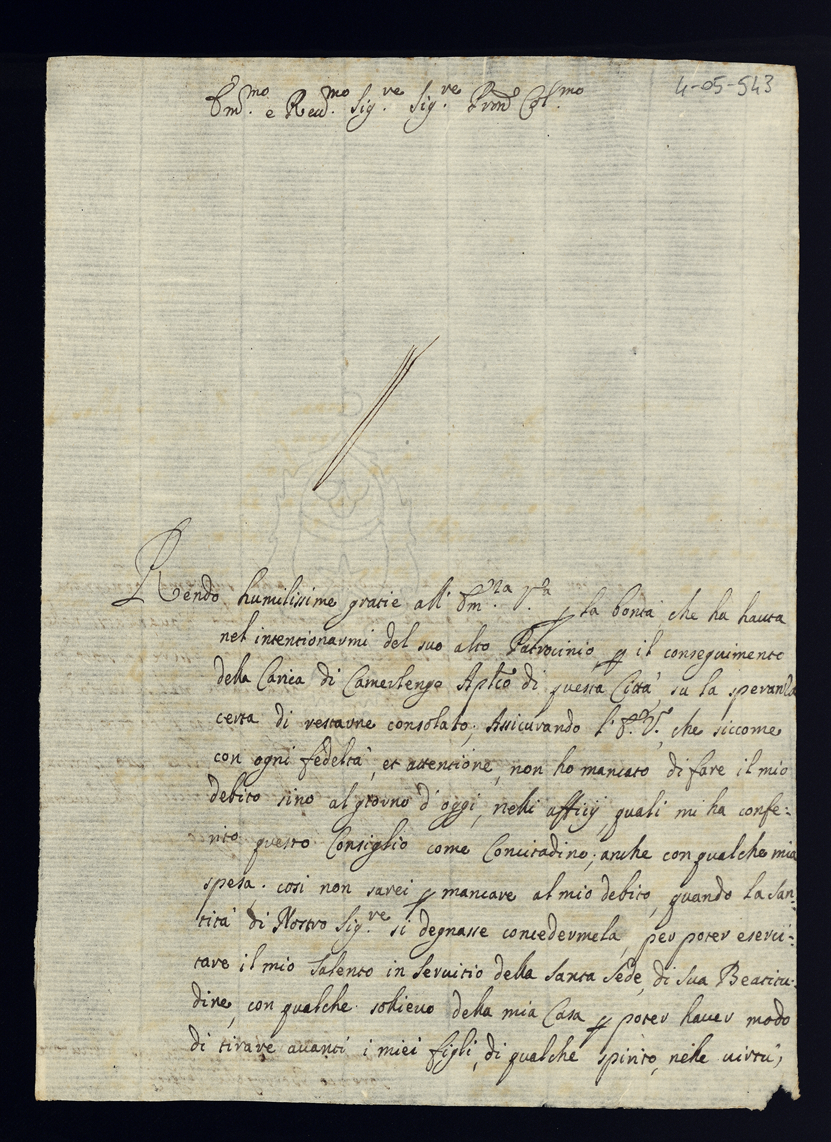 4-05-543
Em.mo e Reu.mo Sig.re Sig.re Pron Col.mo
Rendo humilissime gratie all' Em.nza V.ra p la bontà, che ha hauta
nel intentionarmi del suo alto Patrocinio p il conseguimento
della Carica di Camerlengo Aplico di questa Città su la speranza
certa di restarne consolato; Assicurando l'E.V. che siccome
con ogni fedeltà, et attentione, non ho mancato di fare il mio
debito sino al giorno d'oggi, nelli officij, quali mi ha confe-
rito questo Consiglio come Concitadino; anche con qualche mia
spesa. così non sarei p mancare al mio debito, quando la San-
tità di Nostro Sig.re si degnasse concedermela, per poter eserci-
tare il mio talento in servitio della Santa Sede, di Sua Beatitu-
dine, con qualche sollievo della mia Casa p poter hauer modo
di tirare auanti i miei figli, di qualche spirito, nelle uirtù;